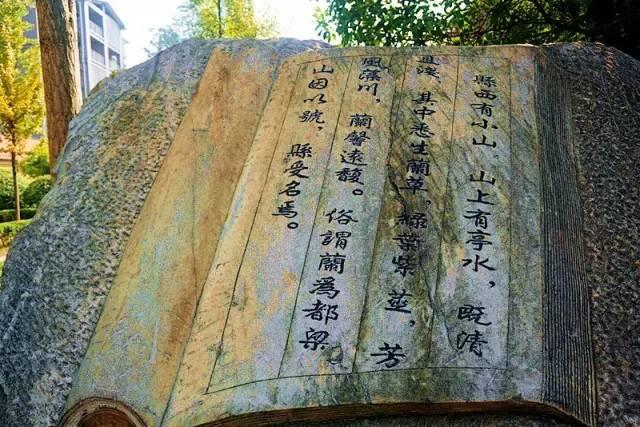 縣西有小山，山上有亭水，既清
且淺，其中悉生蘭草，綠葉紫莖，芳
風藻川，蘭馨遠馥。俗謂蘭爲都梁
山因以號，縣受名焉。